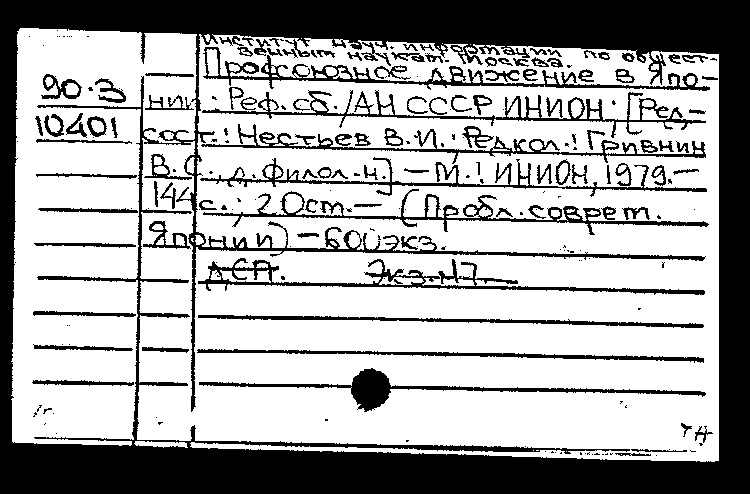 Институт науч. информации по общест-
венным наукам. Москва.
Профсоюзное движение в Япо-
90-3
нии.: Реф. сб./АН СССР, ИНИОН; [Ред.-
10401
сост.: Нестьев В.И.; Редкол.: Гривнин
В.С., д. филол. н.] — М.: ИНИОН, 1979.—
144 с.; 20 см.— (Пробл. соврем.
Японии) — 600 экз.
ДСП. Экз. №17
ТН